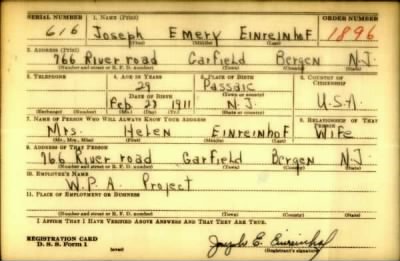 SERIAL NUMBER 1. NAME (Print) ORDER NUMBER
616 Joseph Emery Einreinhof 1896
(First) (Middle) (Last)
2. ADDRESS (Print)
766 River road Garfield Bergen N.J.
(Number and street or R. F. D. number) (Town) (County) (State)
3. TELEPHONE 4. AGE IN YEARS 5. PLACE OF BIRTH 6. COUNTRY OF CITIZENSHIP
29 Passaic
DATE OF BIRTH (Town or county)
Feb 27 1911 N.J. U.S.A.
(Exchange) (Number) (Mo.) (Day) (Yr.) (State or country)
7. NAME OF PERSON WHO WILL ALWAYS KNOW YOUR ADDRESS 8. RELATIONSHIP OF THAT PERSON
Mrs. Helen Einreinhof Wife
(Mr., Mrs., Miss) (First) (Middle) (Last)
9. ADDRESS OF THAT PERSON
766 River road Garfield Bergen N.J.
(Number and street or R. F. D. number) (Town) (County) (State)
10. EMPLOYER'S NAME
W.P.A. Project
11. PLACE OF EMPLOYMENT OR BUSINESS
(Number and street or R. F. D. number) (Town) (County) (State)
I AFFIRM THAT I HAVE VERIFIED ABOVE ANSWERS AND THAT THEY ARE TRUE.
REGISTRATION CARD
D. S. S. Form 1 (over) Joseph E. Einreinhof
(Registrant's signature)